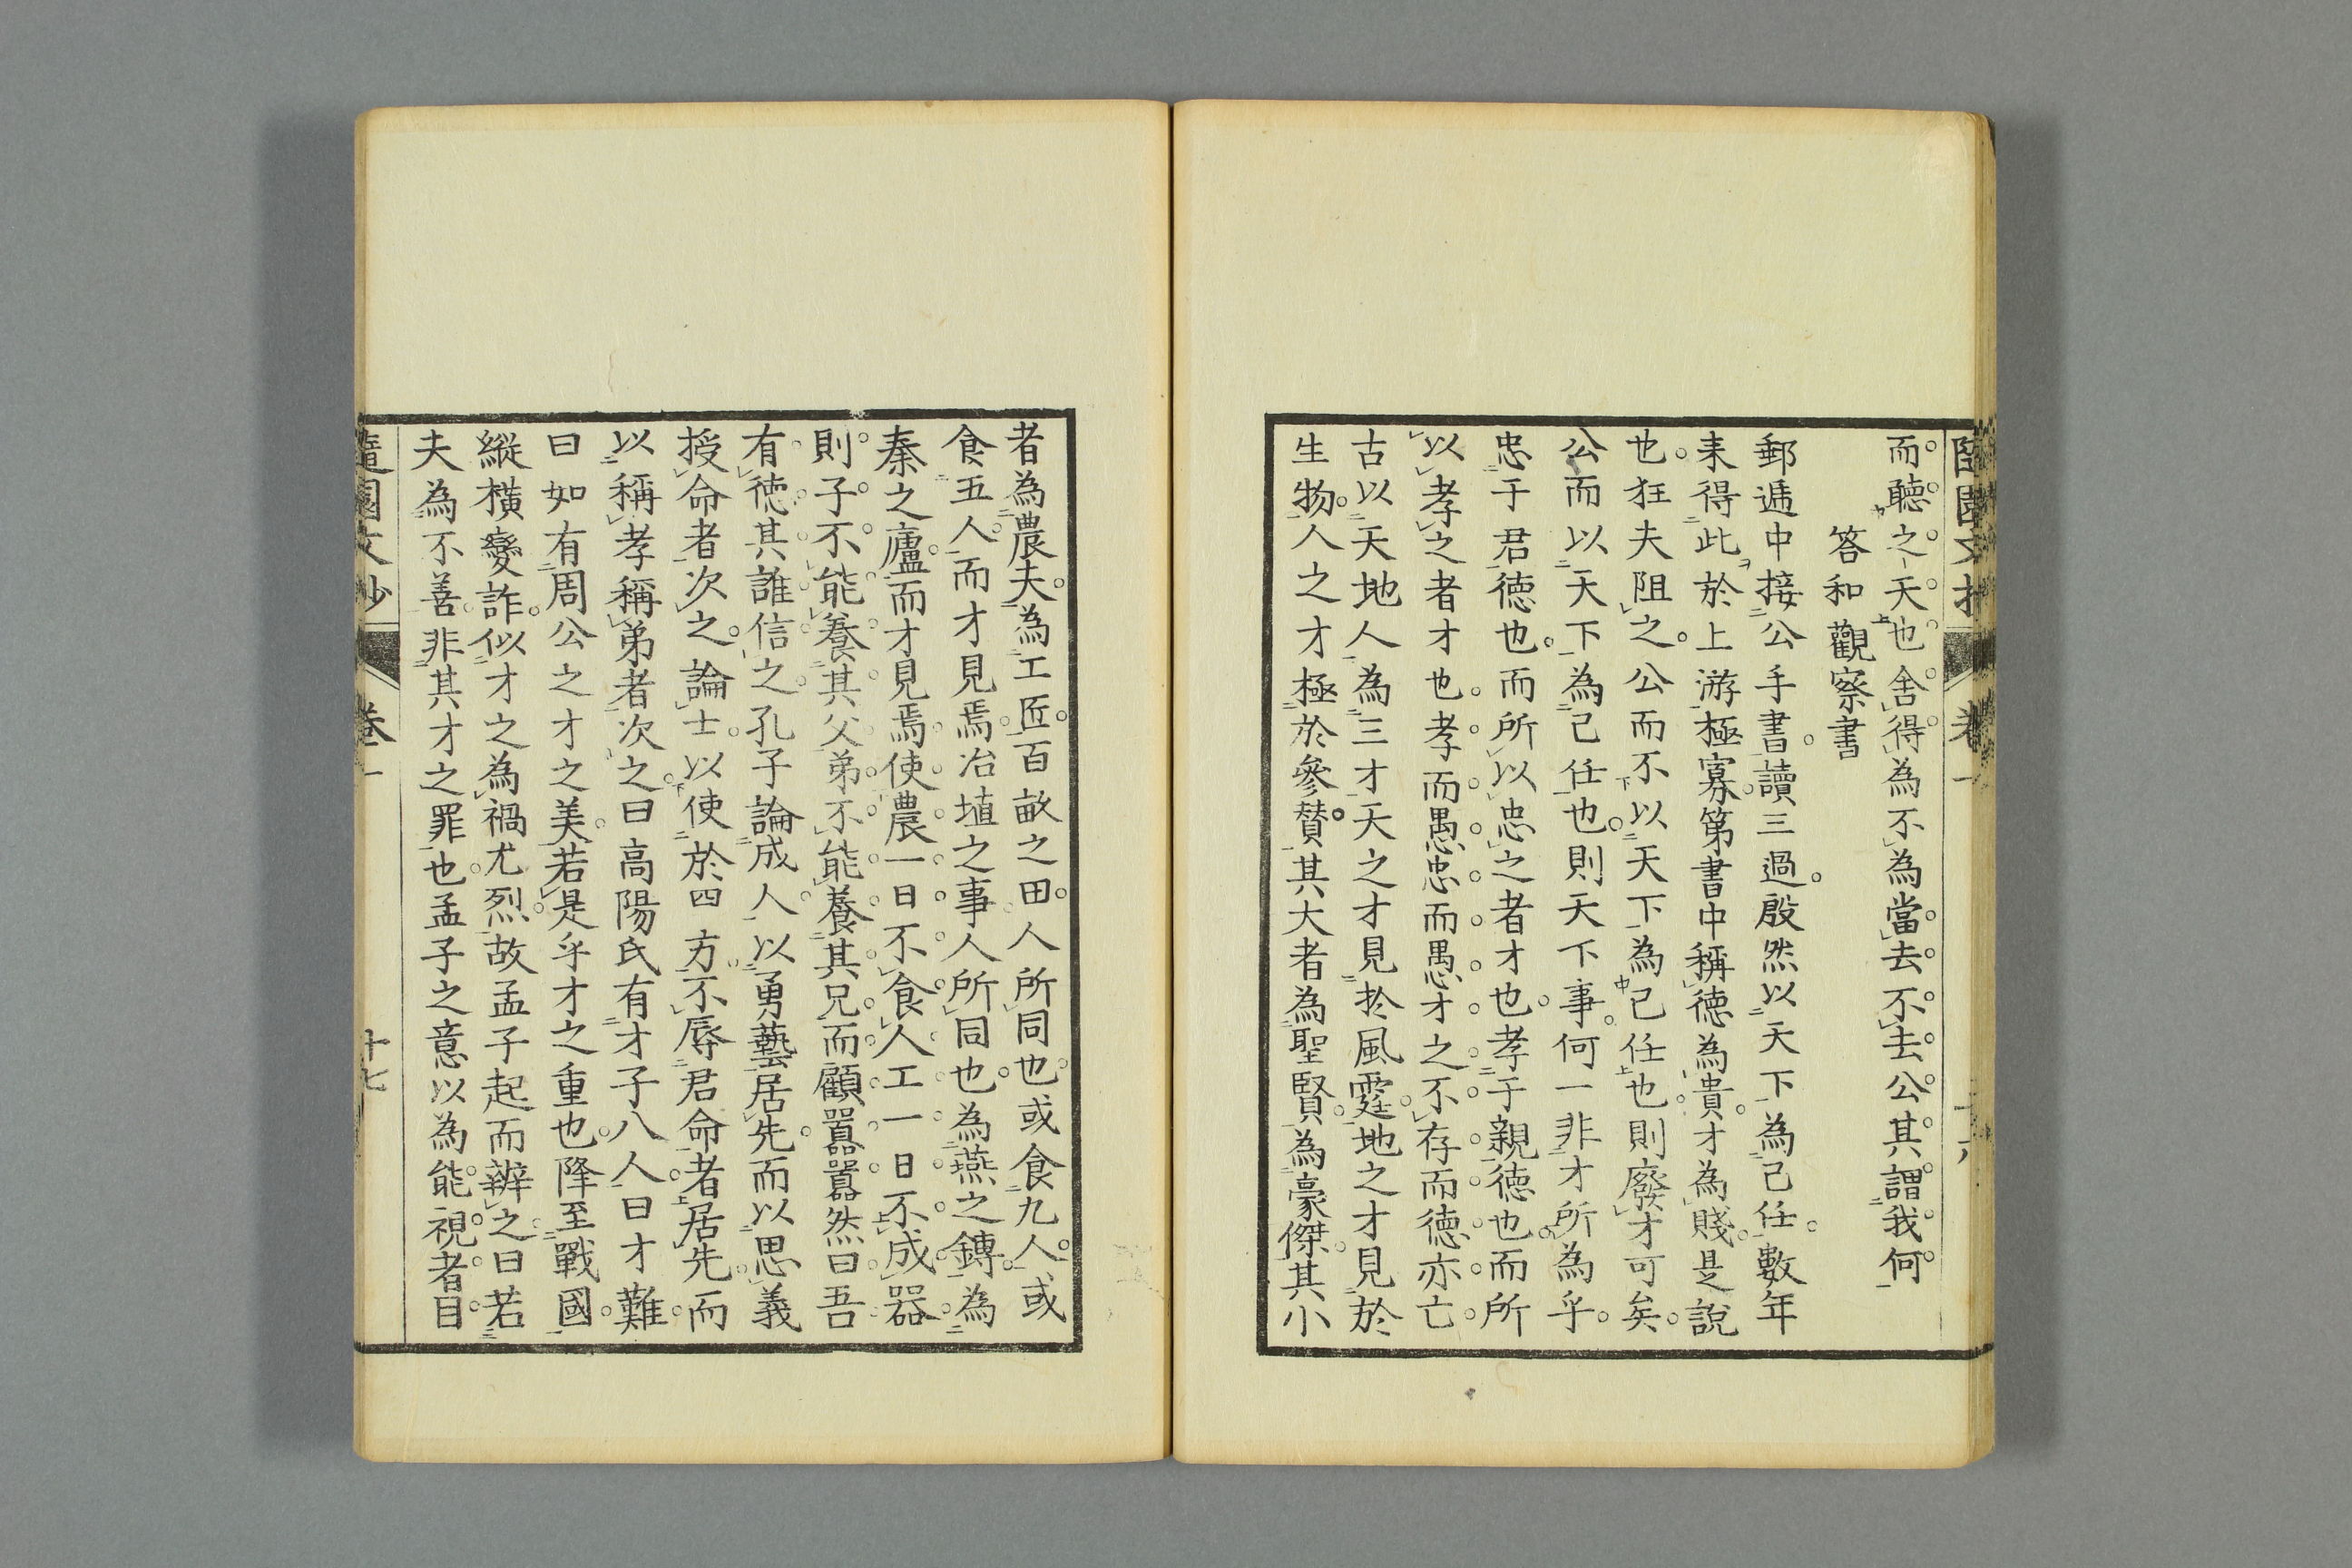 而聽之天也舍得為不為當去不去公其謂我何
答和觀察書
郵遞中接公手書讀三過殷然以天下為己任數年
来得此於上游極寡第書中稱德為貴才為賤是說
也狂夫阻之公而不以天下為己任也則廢才可矣
公而以天下為己任也則天下事何一非才所為乎
忠于君德也而所以忠之者才也孝于親德也而所
以孝之者才也孝而愚忠而愚才之不存而德亦亡
古以天地人為三才天之才見於風霆地之才見於
生物人之才極於參賛其大者為聖賢為豪傑其小
者為農夫為工匠百畝之田人所同也或食九人或
食五人而才見焉冶埴之事人所同也為燕之鎛為
秦之廬而才見焉使農一日不食人工一日不成器
則子不能養其父弟不能養其兄而顧囂囂然曰吾
有德其誰信之孔子論成人以勇藝居先而以思義
授命者次之論士以使於四方不辱君命者居先而
以稱孝稱弟者次之曰高陽氏有才子八人曰才難
曰如有周公之才之美若是乎才之重也降至戰國
縱橫變詐似才之為禍尤烈故孟子起而辨之曰若
夫為不善非其才之罪也孟子之意以為能視者目
隨園文抄 卷一 十七